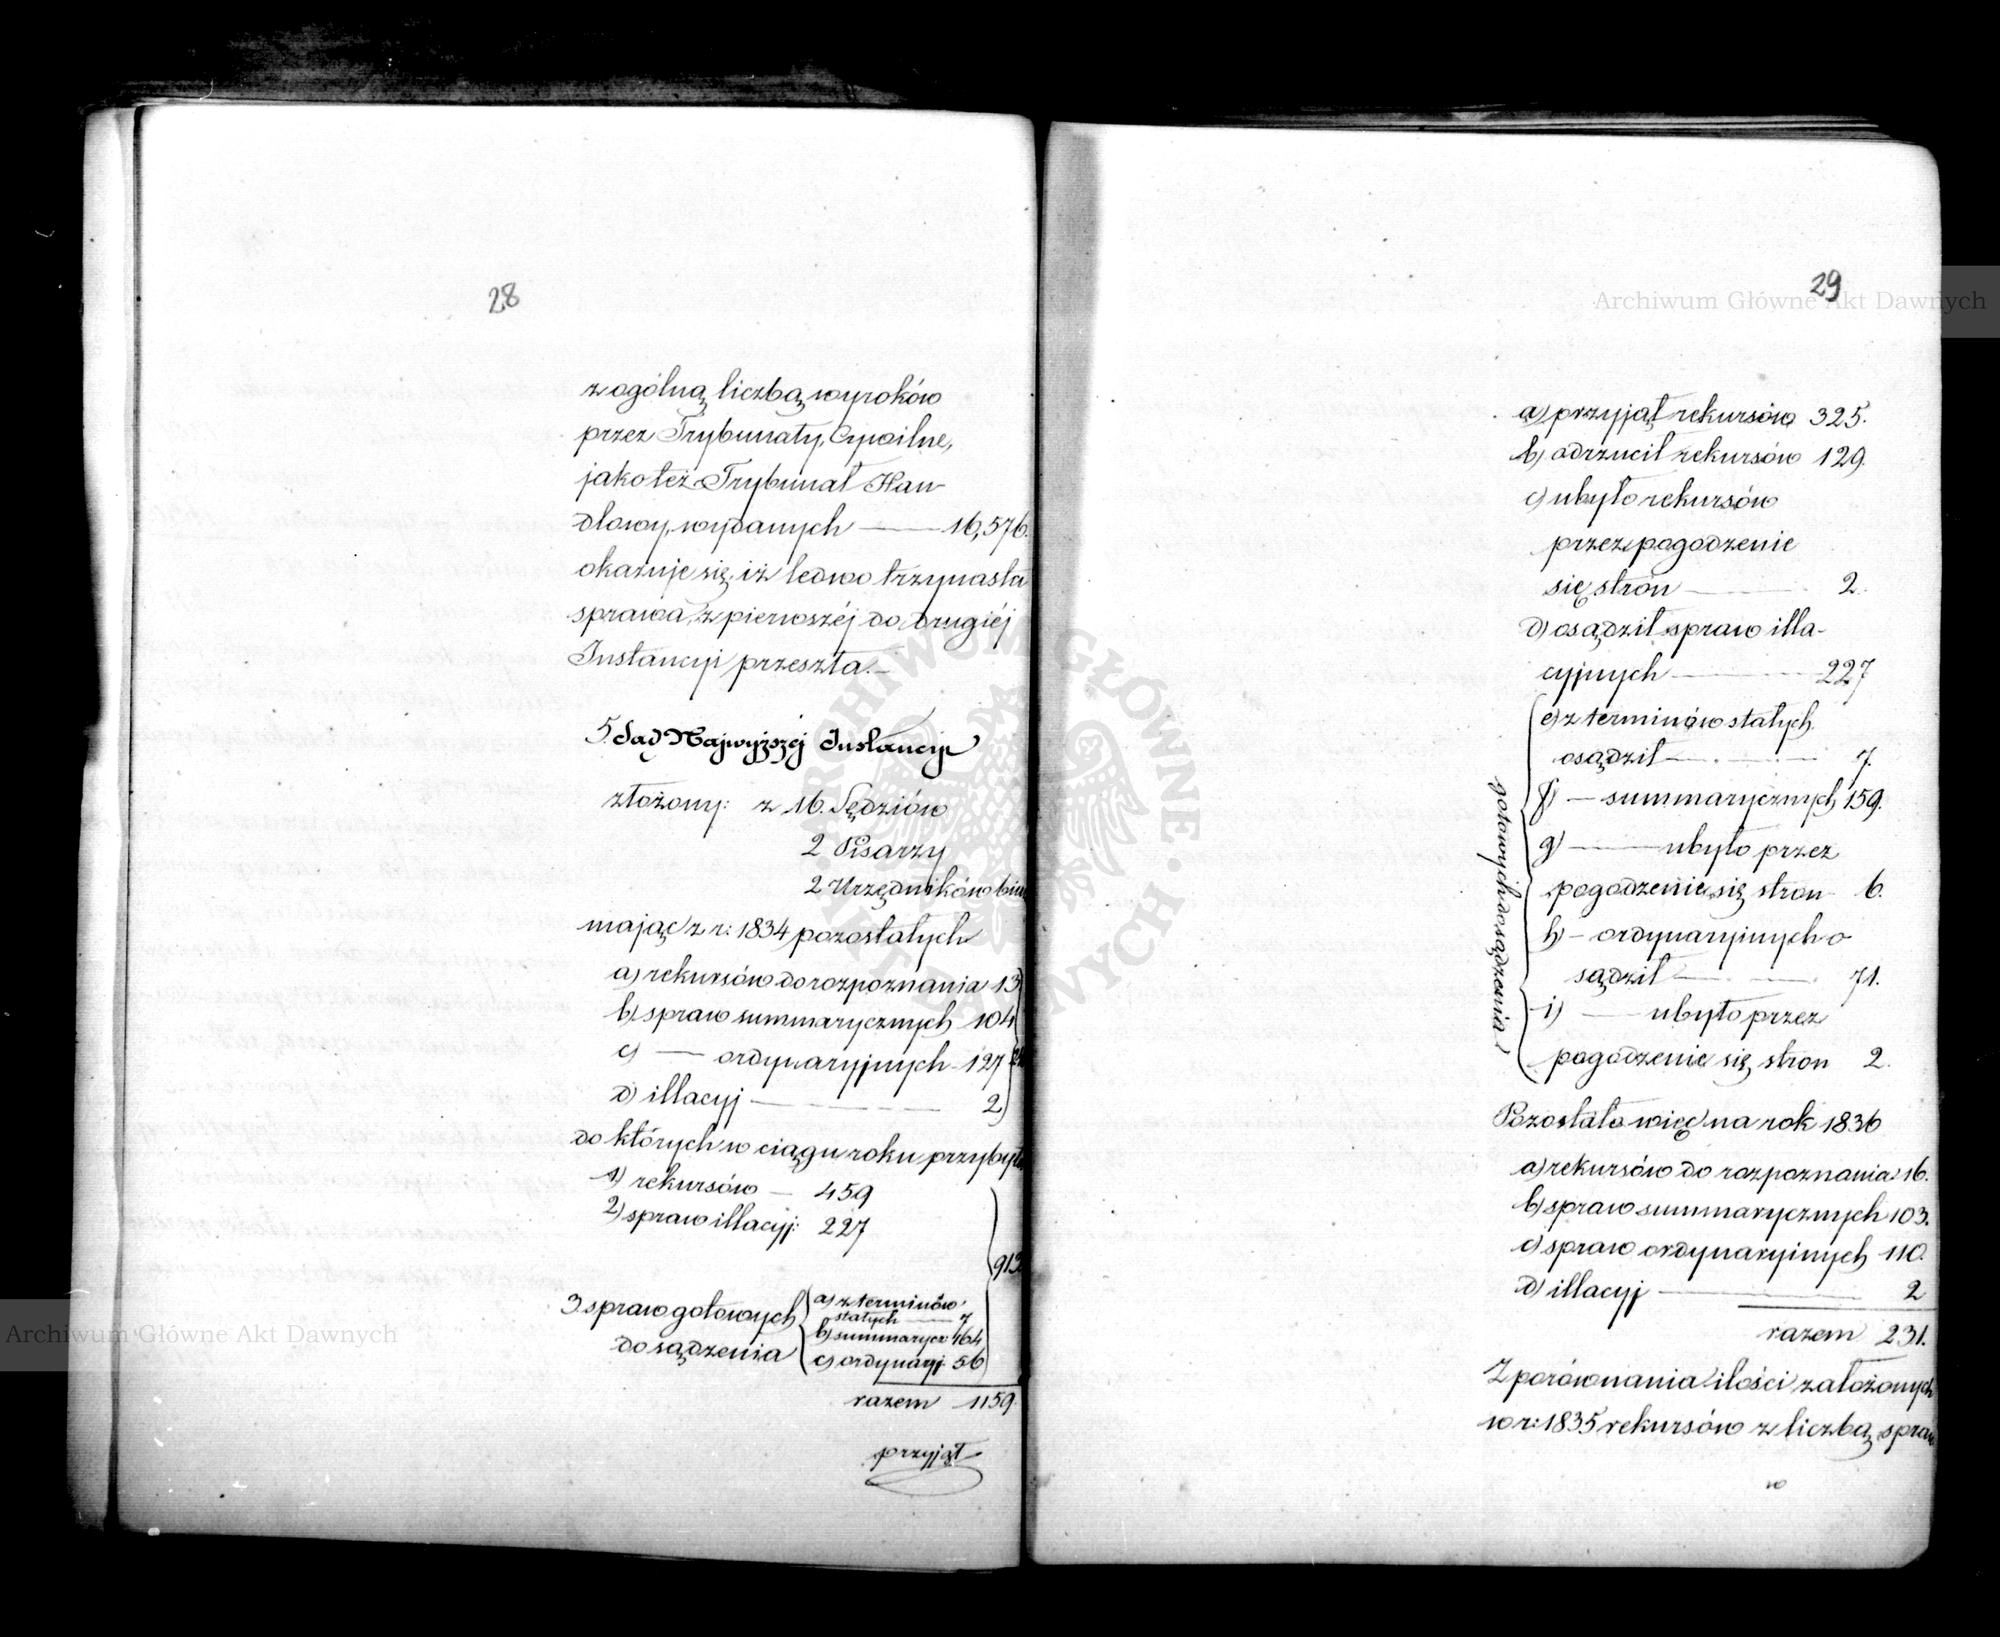 28
z ogólną liczbą wyroków
przez Trybunały Cywilne,
jako też Trybunał Han-
dlowy, wydanych — 16,576.
okazuje się, iż ledwo trzynasta
sprawa z pierwszéj do drugiéj
Instancyi przeszła.—
5. Sąd Najwyższej Instancyi
złożony: z 16. Sędziów
2 Pisarzy
2 Urzędników biu
mając z r: 1834 pozostałych
a) rekursów do rozpoznania 13
b) spraw summarycznych 104
c) — ordynaryjnych - 127
d) illacyj — 2
do których w ciągu roku przybył
1) rekursów — 459
2) spraw illacyj: 227
913
3. spraw gotowych do sądzenia
a) z terminów
stałych — 7
b) summarycz: 164
c) ordynaryj. 56
razem 1159.
przyjął
29
a) przyjął rekursów 325.
b) odrzucił rekursów 129.
c) ubyło rekursów
przez pogodzenie
się stron — 2.
d) osądził spraw illa-
cyjnych — 227
gotowych do sądzenia
e) z terminów stałych
osądził — 7.
f) — summarycznych 159.
g) — ubyło przez
pogodzenie się stron - 6.
h) - ordynaryinych o
sądził — 71.
i) — ubyło przez
pogodzenie się stron 2.
Pozostało więc na rok 1836
a) rekursów do rozpoznania 16.
b) spraw summarycznych 103.
c) spraw ordynaryinych 110.
d) illacyj — 2
razem 231.
Z porównania ilości założonych
w r: 1835 rekursów z liczbą spraw
w
Archiwum Główne Akt Dawnych
Archiwum Główne Akt Dawnych
ARCHIWUM GŁÓWNE AKT DAWNYCH